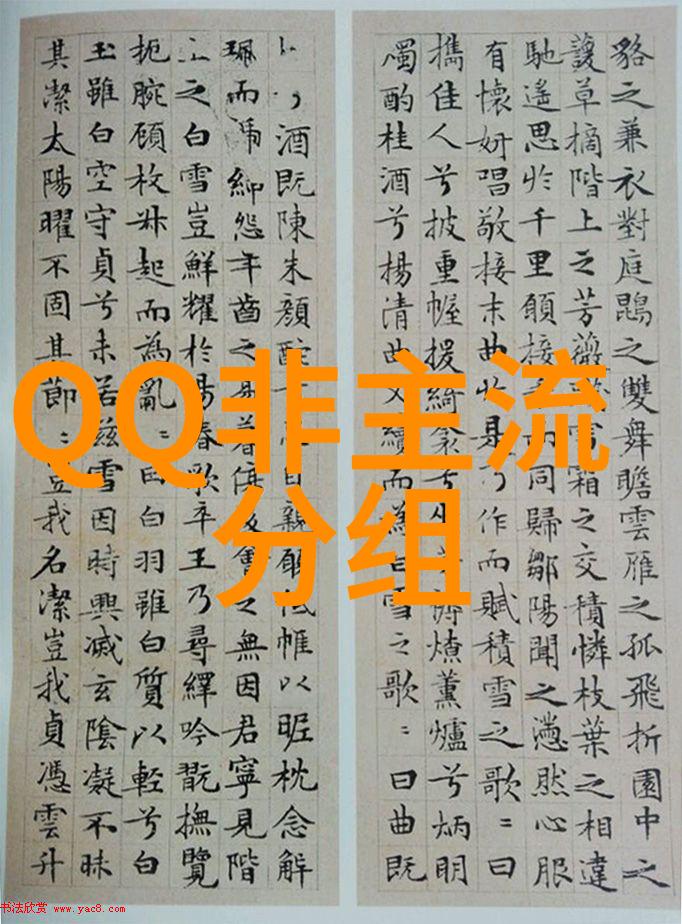 貉之兼衣對庭鵾之雙舞瞻雲雁之孤飛折園中之
護草摘階上之芳薇雪霜之交積憐枝葉之相違
馳遙思於千里願接手而同歸鄒陽聞之懣然心服
有懷妍唱敬接末曲於是乃作而賦積雪之歌::曰
攜佳人兮披重幄援綺衾兮燎薰爐兮炳明
燭酌桂酒兮揚清曲又續而為白雪之歌::曰曲既
兮酒既陳朱顏酡自親願低帷以昵枕念解
珮而紳怨年之易暮無因君寧見階
上之白雪豈鮮耀於陽春歌卒王乃尋繹吟翫撫覽
扼腕顧枚叔起而為亂::曰白羽雖白質以輕兮白
玉雖白空守貞兮未若茲雪因時興滅玄陰凝不昧
其潔太陽曜不固其節::豈我名潔豈我貞憑雲升
QQ非主流
分组
书法欣赏 www.yac8.com